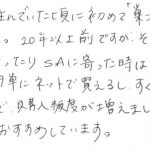 住んでいた頃に初めて「巣
。20年以上前ですが、そ
ったりSAに寄った時は
単にネットで買えるし、すぐ
で、購入頻度が増えまし
おすすめしています。